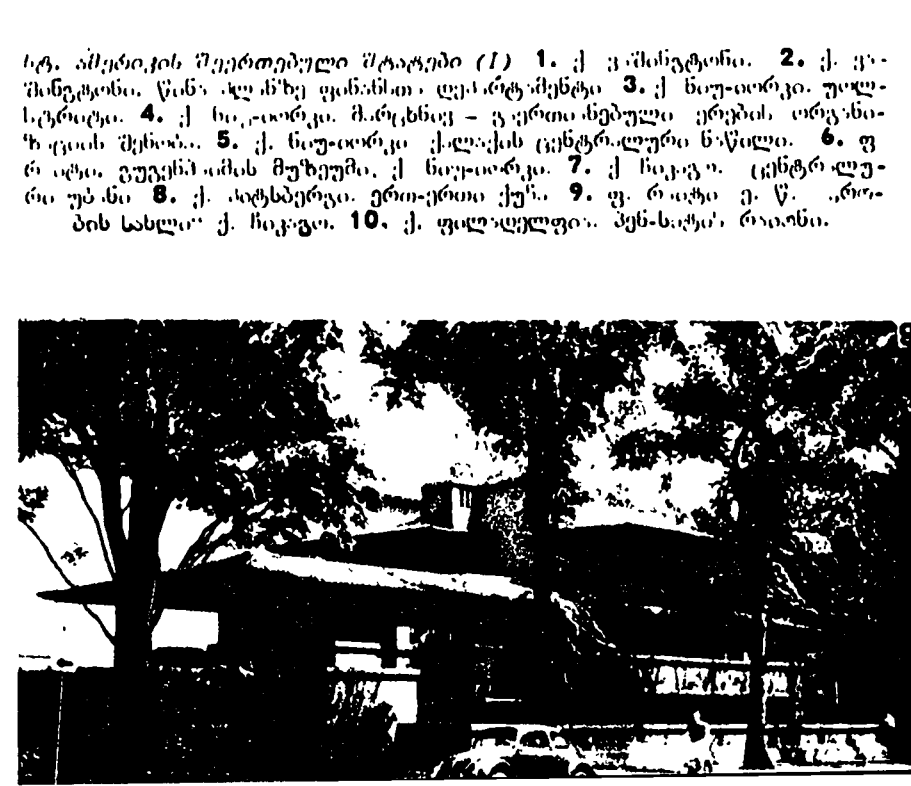 სტ. ამერიკის შეერთებული შტატები (I) 1. ქ. ვაშინგტონი. 2. ქ. ვა-
შინგტონი. წინა პლანზე ფინანსთა დეპარტამენტი 3. ქ. ნიუ-იორკი. უოლ-
სტრიტი. 4. ქ. ნიუ-იორკი. მარცხნივ – გაერთიანებული ერების ორგანი-
ზაციის შენობა. 5. ქ. ნიუ-იორკი ქალაქის ცენტრალური ნაწილი. 6. ფ.
რაიტი. გუგენჰაიმის მუზეუმი. ქ. ნიუ-იორკი. 7. ქ. ჩიკაგო. ცენტრალუ-
რი უბანი 8. ქ. პიტსბერგი. ერთ-ერთი ქუჩა. 9. ფ. რაიტი ე. წ.
ბის სახლი" ქ. ჩიკაგო. 10. ქ. ფილადელფია. პენ-სატის რაიონი.
9